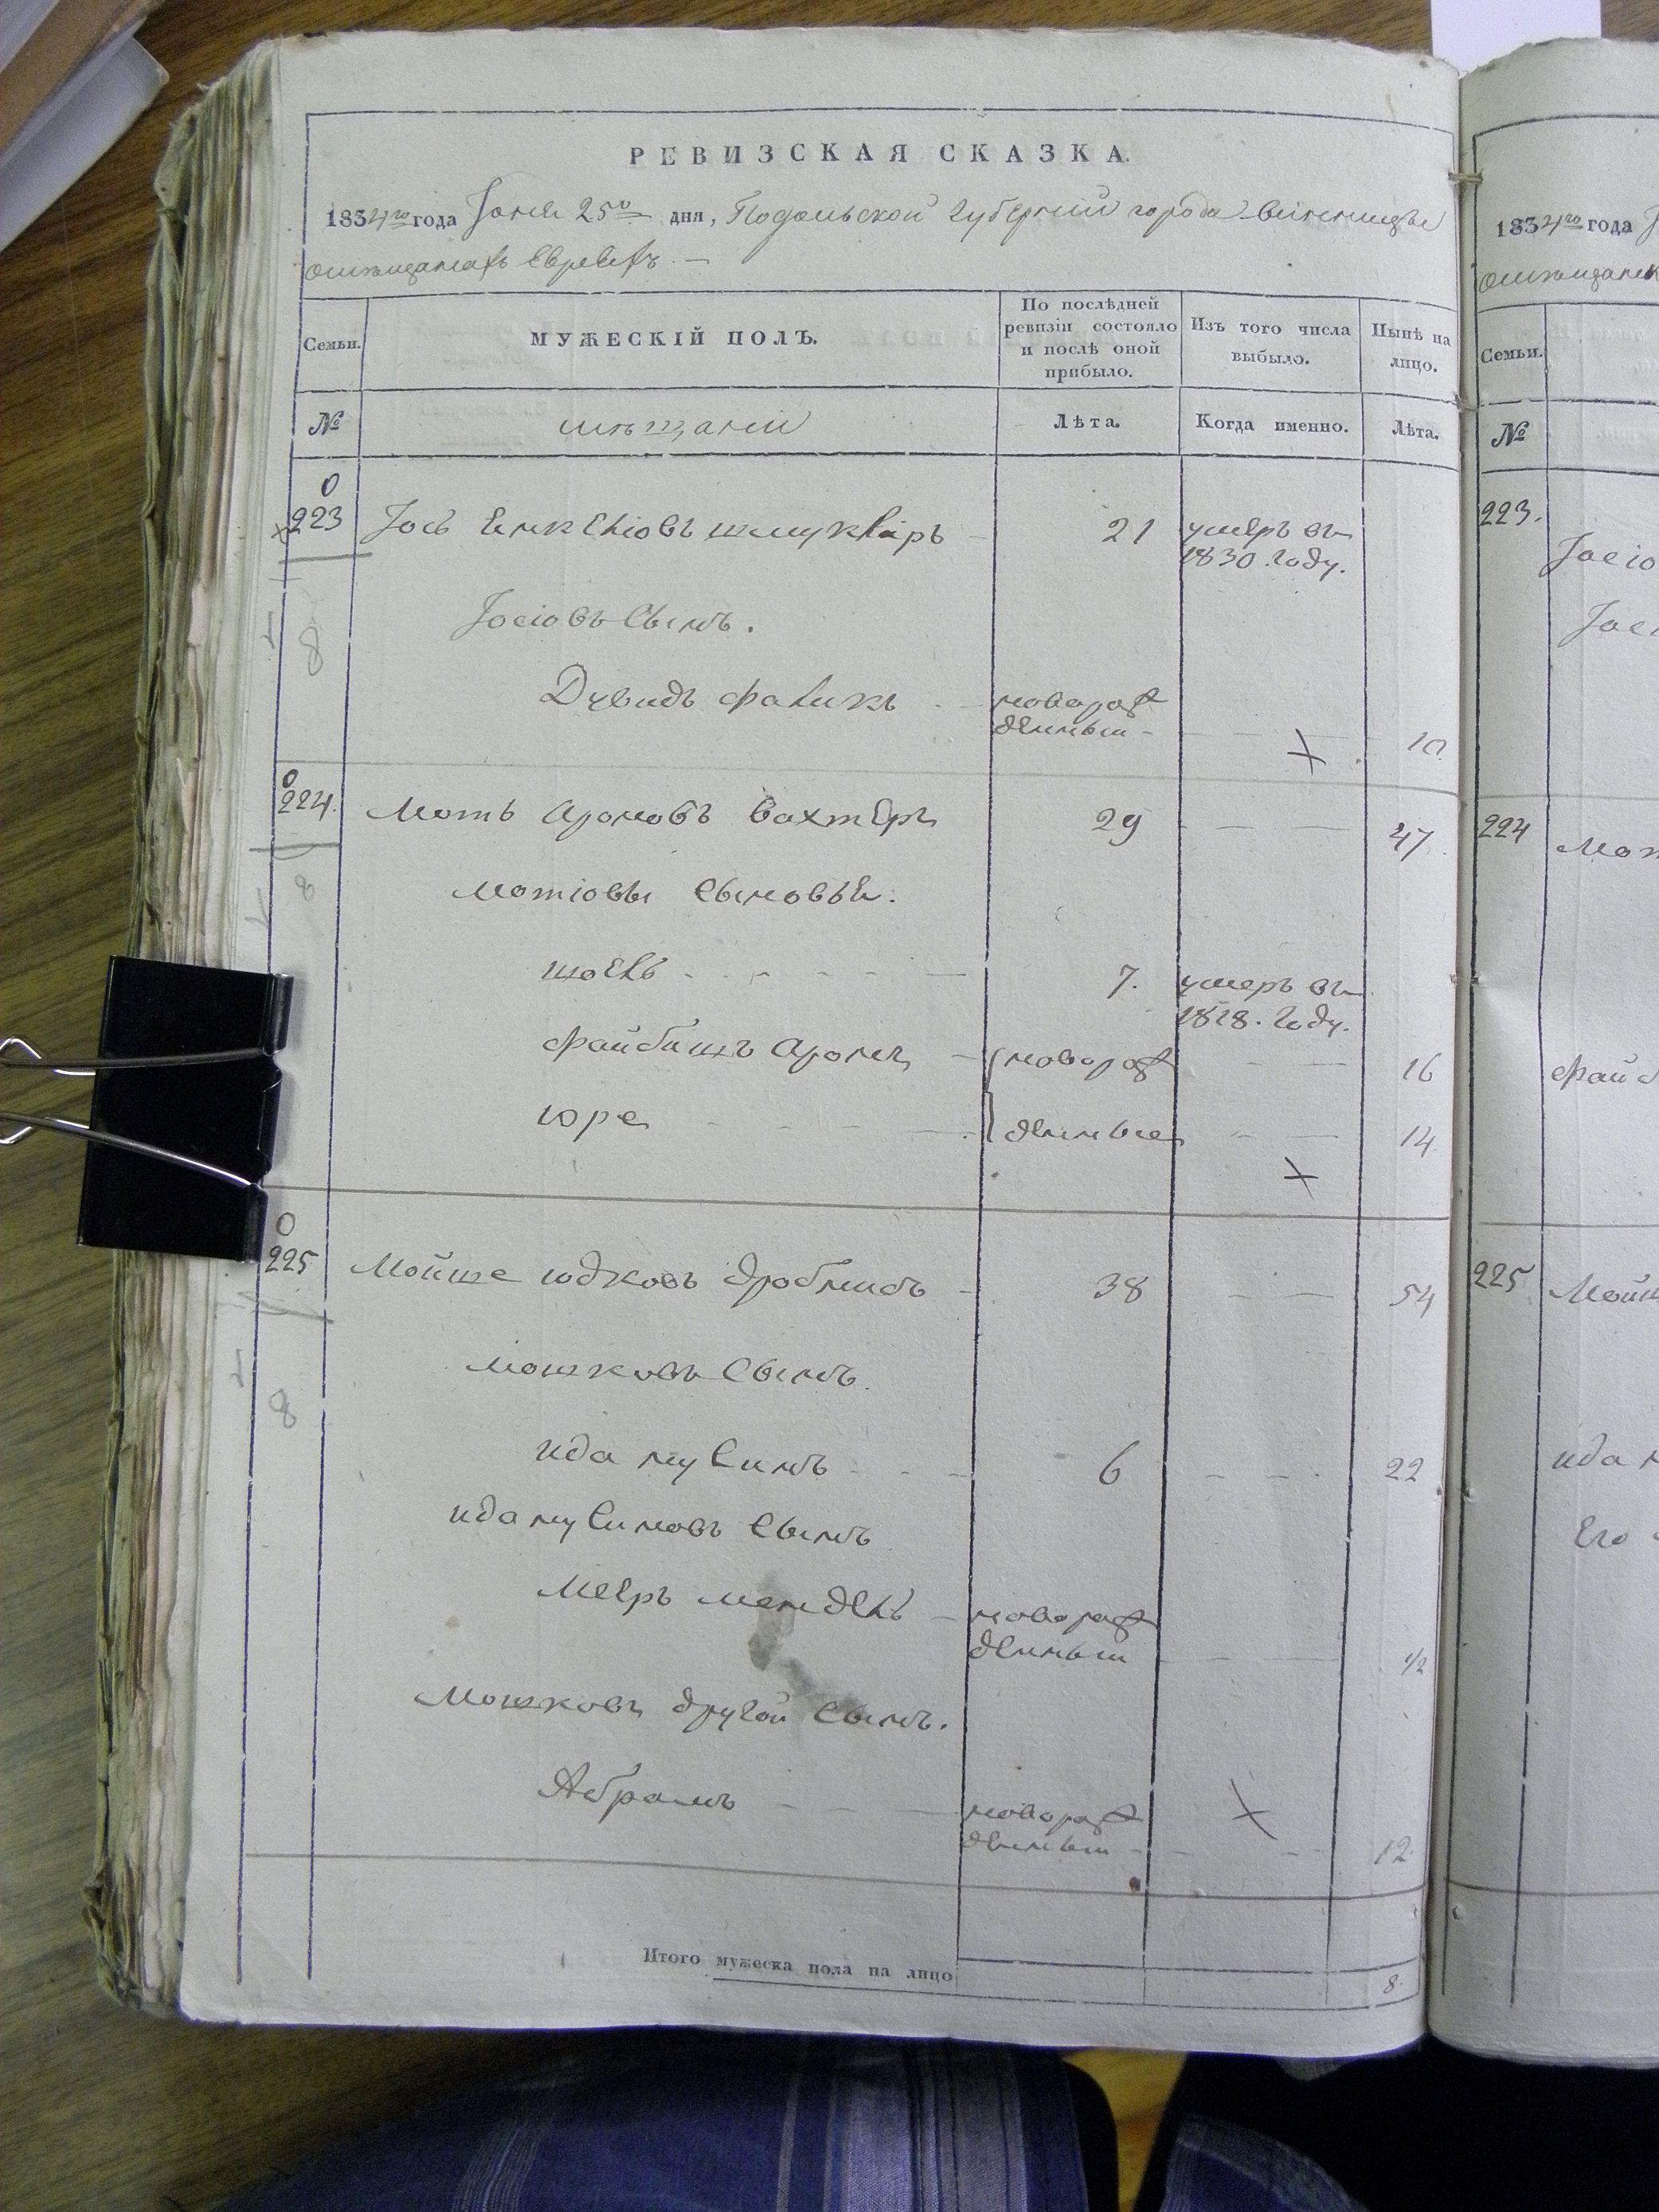 РЕВИЗСКАЯ СКАЗКА.
1834го года Іюня 25го дня, Подольской Губерніи города Винницы
о мѣщанахъ Евреяхъ. —
Семьи.
МУЖЕСКІЙ ПОЛЪ.
По послѣдней ревизіи состояло и послѣ оной прибыло.
Изъ того числа выбыло.
Нынѣ на лицо.
№
мѣщани
Лѣта.
Когда именно.
Лѣта.
0
223 Іось Янкеліовъ шмукляръ 21 умеръ въ
1830. году.
Іосіовъ сынъ.
8
Дувидъ Фаликъ новорож
денный 10
0
224. Моть Ароновъ Вахтеръ 29 47.
8
Мотіовы сыновья:
шоель 7. умеръ въ
1818. году.
Файбишъ Аронъ новорож 16
юре денные 14
0
225 Мойше юдковъ дробнисъ 38 54
Мошковъ сынъ.
8
ида нусинъ 6 22
иданусиновъ сынъ
Мееръ мендель новорож
денный 1/2
Мошковъ другой сынъ.
Абрамъ новорож
денный 12.
Итого мужеска пола на лицо 8.
1834го года
Семьи.
№
223.
Іосіо
224
Мот
файб
225
Мойш
ида н
Его